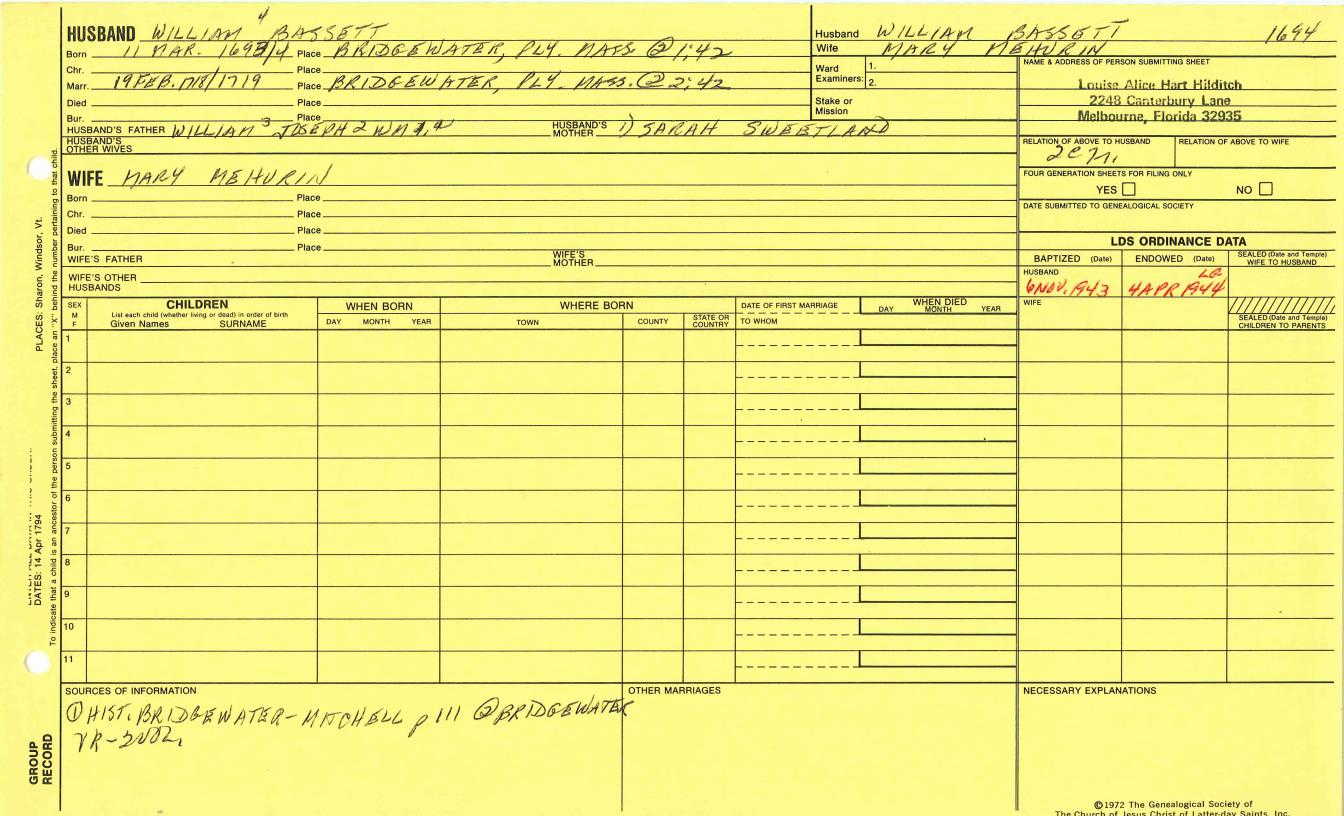 4
HUSBAND WILLIAM BASSETT
Born 11 MAR. 1693/4 Place BRIDGEWATER, PLY. MASS ② 1:42
Chr. Place
Marr. 19 FEB. 1718/1719 Place BRIDGEWATER, PLY. MASS. ② 2:42
Died Place
Bur. Place
HUSBAND'S FATHER WILLIAM 3 JOSEPH 2 WM HUSBAND'S MOTHER 1) SARAH SWEETLAND
HUSBAND'S OTHER WIVES
WIFE MARY MEHURIN
Born Place
Chr. Place
Died Place
Bur. Place
WIFE'S FATHER WIFE'S MOTHER
WIFE'S OTHER HUSBANDS
Husband WILLIAM BASSETT 1694
Wife MARY MEHURIN
Ward Examiners: 1.
2.
Stake or Mission
NAME & ADDRESS OF PERSON SUBMITTING SHEET
Louise Alice Hart Hilditch
2248 Canterbury Lane
Melbourne, Florida 32935
RELATION OF ABOVE TO HUSBAND RELATION OF ABOVE TO WIFE
FOUR GENERATION SHEETS FOR FILING ONLY
YES NO
DATE SUBMITTED TO GENEALOGICAL SOCIETY
LDS ORDINANCE DATA
BAPTIZED (Date) ENDOWED (Date) SEALED (Date and Temple) WIFE TO HUSBAND
HUSBAND
LG
6 NOV. 1943 4 APR 1944
WIFE
SEALED (Date and Temple) CHILDREN TO PARENTS
SEX M F
CHILDREN
List each child (whether living or dead) in order of birth
Given Names SURNAME
WHEN BORN
DAY MONTH YEAR
WHERE BORN
TOWN COUNTY STATE OR COUNTRY
DATE OF FIRST MARRIAGE
TO WHOM
WHEN DIED
DAY MONTH YEAR
1
2
3
4
5
6
7
8
9
10
11
SOURCES OF INFORMATION
① HIST. BRIDGEWATER-MITCHELL p 111 ② BRIDGEWATER
VR-2 VOL.
OTHER MARRIAGES
NECESSARY EXPLANATIONS
©1972 The Genealogical Society of
The Church of Jesus Christ of Latter-day Saints, Inc.
PLACES: Sharon, Windsor, Vt.
DATES: 14 Apr 1794
To indicate that a child is an ancestor of the person submitting the sheet, place an "X" behind the number pertaining to that child.
GROUP
RECORD